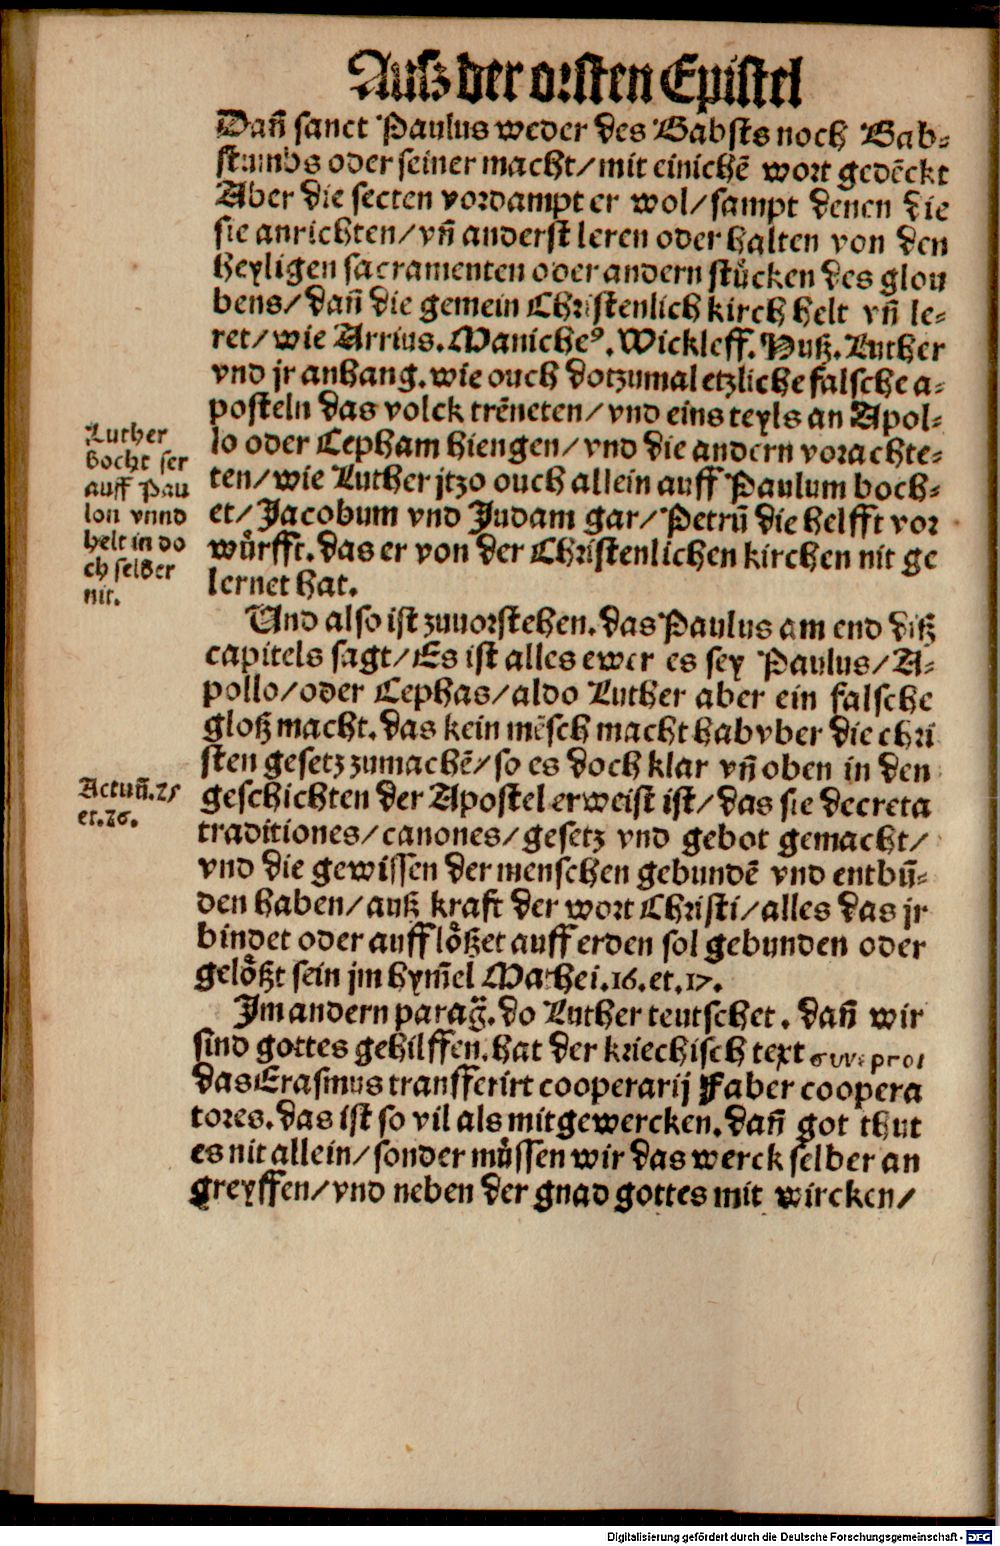 Ausz der orsten Epistel
Dañ sanct Paulus weder des Babsts noch Bab-
stumbs oder seiner macht/ mit einichẽ wort gedẽckt
Aber die secten vordampt er wol/ sampt denen die
sie anrichten/ vñ anderst leren oder halten von den
heyligen sacramenten oder andern stůcken des glou
bens/ dañ die gemein Christenlich kirch helt vñ le-
ret/ wie Arrius. Manicheꝰ. Wickleff. Huß. Luther
vnd jr anhang. wie ouch dotzumal etzliche falsche a-
posteln das volck trẽneten/ vnd eins teyls an Apol-
lo oder Cepham hiengen/ vnd die andern vorachte-
ten/ wie Luther jtzo ouch allein auff Paulum boch-
et/ Jacobum vnd Judam gar/ Petrũ die helfft vor
wůrfft. das er von der Christenlichen kirchen nit ge
lernet hat.
Luther
bocht ser
auff Pau
lon vnnd
helt in do
ch selber
nit.
Und also ist zuuorstehen. das Paulus am end diß
capitels sagt/ Es ist alles ewer es sey Paulus/ A-
pollo/ oder Cephas/ aldo Luther aber ein falsche
gloß macht. das kein mẽsch macht hab vber die chri
sten gesetz zumachẽ/ so es doch klar vñ oben in den
geschichten der Apostel erweist ist/ das sie decreta
traditiones/ canones/ gesetz vnd gebot gemacht/
vnd die gewissen der menschen gebundẽ vnd entbũ-
den haben/ auß kraft der wort Christi/ alles das jr
bindet oder aufflőßet auff erden sol gebunden oder
gelőßt sein jm hym̃el Mathei. 16. et. 17.
Actuũ. 15
et. 26.
Im andern parag̃. do Luther teutschet. dañ wir
sind gottes gehilffen. hat der kriechisch text
das Erasmus transfferirt cooperarij Faber coopera
tores. das ist so vil als mitgewercken. dañ got thut
es nit allein/ sonder můssen wir das werck selber an
greyffen/ vnd neben der gnad gottes mit wircken/
Digitalisierung gefördert durch die Deutsche Forschungsgemeinschaft - DFG